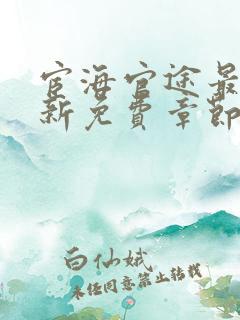 宦海官途最
新免費章節
白仙娥
未经同意禁止转载